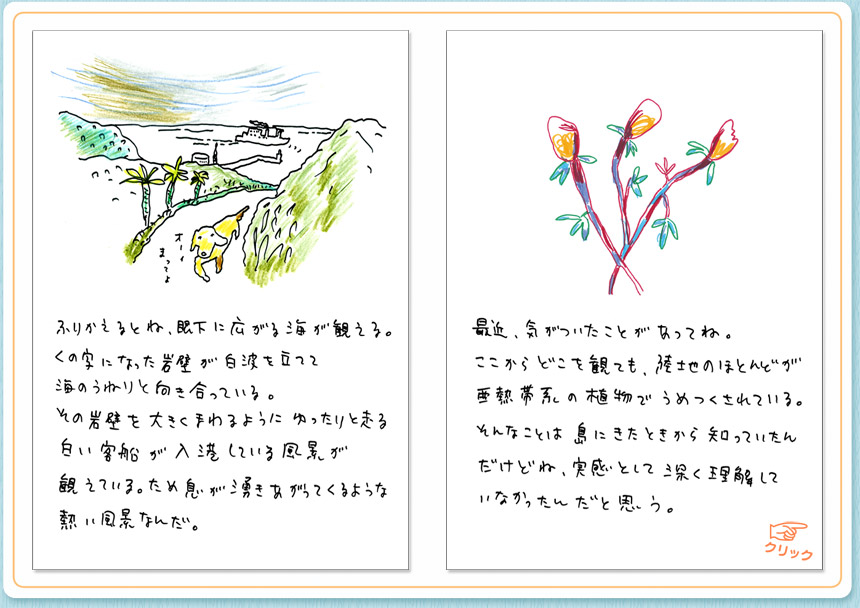 オーイ
まってよ
ふりかえるとね、眼下に広がる海が観える。
くの字になった岩壁が白波を立てて
海のうねりと向き合っている。
その岩壁を大きくまわるようにゆったりと走る
白い客船が入港している風景が
観えている。ため息が湧きあがってくるような
熱い風景なんだ。
最近、気がついたことがあってね。
ここからどこを観ても、陸地のほとんどが
亜熱帯系の植物でうめつくされている。
そんなことは島にきたときから知っていたん
だけどね、実感として深く理解して
いなかったんだと思う。
クリック